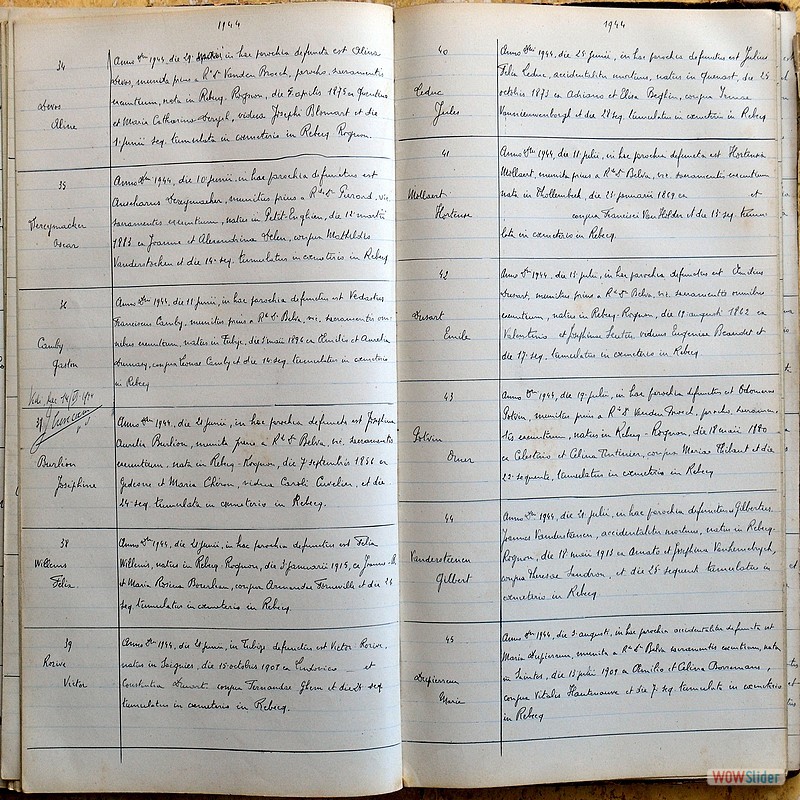 1944
34
Devos
Aline
Anno Dni 1944, die 29 in hac parochia defuncta est Alina
Devos, munita prius a Rdo Do Vanden Broeck, parocho, sacramentis
exeuntium, nata in Rebecq-Rognon, die 5 aprilis 1875 ex
et Maria Catharina vidua Josephi Blomart et die
1 junii seq. tumulata in cœmeterio in Rebecq Rognon.
35
Dereymacker
Oscar
Anno Dni 1944, die 10 junii, in hac parochia defunctus est
Dereymacker, munitus prius a Rdo Do Pierard, vic.
sacramentis exeuntium, natus in Petit-Enghien, die 11 martii
1883 ex Joanne et Alexandrina conjux Mathildis
Vanderstocken et die 14 seq. tumulatus in cœmeterio in Rebecq
36
Camby
Gaston
Anno Dni 1944, die 11 junii, in hac parochia defunctus est Vedastus
Franciscus Camby, munitus prius a Rdo Do Belva, vic. sacramentis om-
nibus exeuntium, natus in Tubize, die 5 maii 1896 ex Emilio et Aurelia
conjux Leonae Camby et die 14 seq. tumulatus in cœmeterio
in Rebecq
37
Burlion
Joséphine
Anno Dni 1944, die 21 junii, in hac parochia defuncta est Josephina
Aurelia Burlion, munita prius a Rdo Do Belva, vic. sacramentis
exeuntium, nata in Rebecq-Rognon, die 7 septembris 1856 ex
Gedeone et Maria Chéron, vidua Caroli Cuvelier, et die
24 seq. tumulata in cœmeterio in Rebecq.
38
Willems
Félix
Anno Dni 1944, die 21 junii, in hac parochia defunctus est Felix
Willems, natus in Rebecq-Rognon, die 3 januarii 1915, ex Joanne
et Maria Rosina conjux Armanda et die 24
seq. tumulatus in cœmeterio in Rebecq.
39
Rosive
Victor
Anno Dni 1944, die 21 junii, in Tubize defunctus est Victor Rosive,
natus in Saeguies, die 15 octobris 1905 ex Ludovico et
Constantia conjux Fernandae et die 21 seq
tumulatus in cœmeterio in Rebecq.
1944
40
Leduc
Jules
Anno Dni 1944, die 25 junii, in hac parochia defunctus est Julius
Felix Leduc, accidentalitor mortuus, natus in Quenast, die 25
octobris 1873 ex Adriano et Elisa Beghin, conjux Irmae
Vannieuwenborgh et die 28 seq. tumulatus in cœmeterio in Rebecq
41
Mollaert
Hortense
Anno Dni 1944, die 11 julii, in hac parochia defuncta est Hortensia
Mollaert, munita prius a Rdo Do Belva, vic. sacramentis exeuntium
nata in Thollembeek, die 21 januarii 1869 ex et
conjux Francisci Van Helder et die 15 seq. tumu-
lata in cœmeterio in Rebecq.
42
Dusart
Emile
Anno Dni 1944, die 15 julii, in hac parochia defunctus est Emilius
Dusart, munitus prius a Rdo Do Belva, vic. sacramentis omnibus
exeuntium, natus in Rebecq-Rognon, die 19 augusti 1862 ex
Valentino et Josephina viduus Eugeniae et
die 17 seq. tumulatus in cœmeterio in Rebecq
43
Potvin
Omer
Anno Dni 1944, die 19 julii, in hac parochia defunctus est Odomarus
Potvin, munitus prius a Rdo Do Vanden Broeck, parocho, sacramen-
tis exeuntium, natus in Rebecq-Rognon, die 18 maii 1880
ex Celestino et Celina conjux Mariae Thibaut et die
22 sequente, tumulatus in cœmeterio in Rebecq
44
Vandersteenen
Gilbert
Anno Dni 1944, die 21 julii, in hac parochia defunctus Gilbertus
Joannes Vandersteenen, accidentalitor mortuus, natus in Rebecq-
Rognon, die 18 maii 1913 ex Amato et Josephina
conjux Theresae Landron, et die 25 sequenti tumulatus in
cœmeterio in Rebecq
45
Dupierreux
Marie
Anno Dni 1944, die 3 augusti, in hac parochia accidentalitor defuncta est
Maria Dupierreux, munita a Rdo Do Belva sacramentis exeuntium, nata
in Saintes, die 13 julii 1909 ex Emilio et Celina
conjux Vitalis et die 7 seq. tumulata in cœmeterio
in Rebecq
WOWSlider